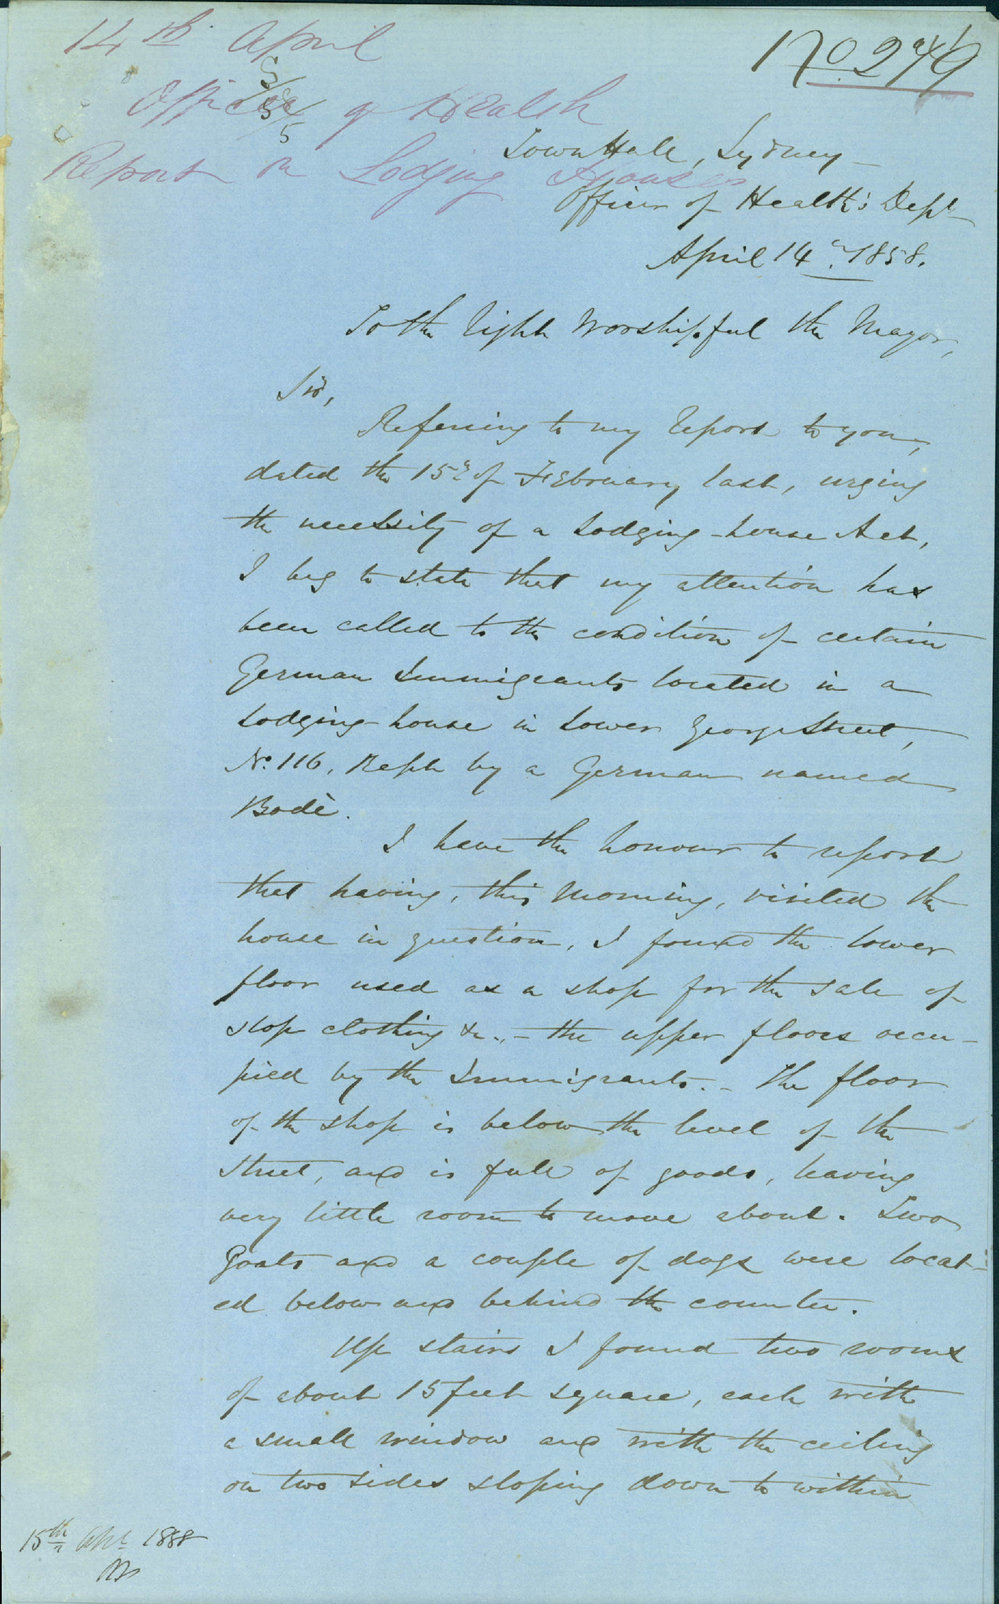 14th April
Officer of Health
Report on Lodging Houses
No 249
Town Hall, Sydney –
Officer of Health's Dept
April 14th 1858.
To the Right Worshipful the Mayor,
Sir,
Referring to my Report to you,
dated the 15th of February last, urging
the necessity of a Lodging-house Act,
I beg to state that my attention has
been called to the condition of certain
German Immigrants located in a
Lodging-house in Lower George Street,
No. 116, Kept by a German named
Bodè.
I have the honour to report
that having, this Morning, visited the
house in question, I found the lower
floor used as a shop for the sale of
slop clothing &c., – the upper floors occu-
pied by the Immigrants. – The floor
of the shop is below the level of the
Street, and is full of goods, leaving
very little room to move about. Two
Goats and a couple of dogs were locat-
ed below and behind the counter.
Up stairs I found two rooms
of about 15 feet square, each with
a small window and with the ceiling
on two sides sloping down to within
15th Apl 1858